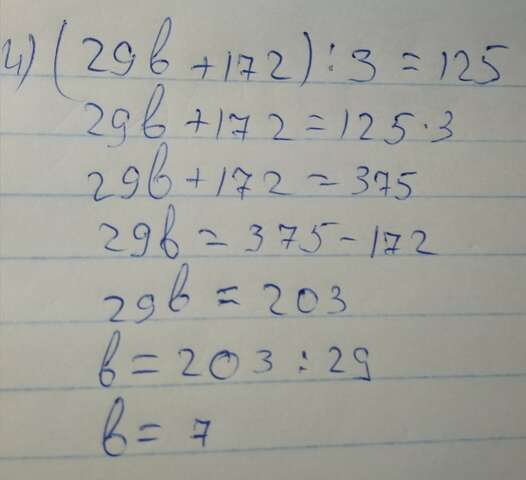 4) (29b+172):3=125
29b+172=125·3
29b+172=375
29b=375-172
29b=203
b=203:29
b=7